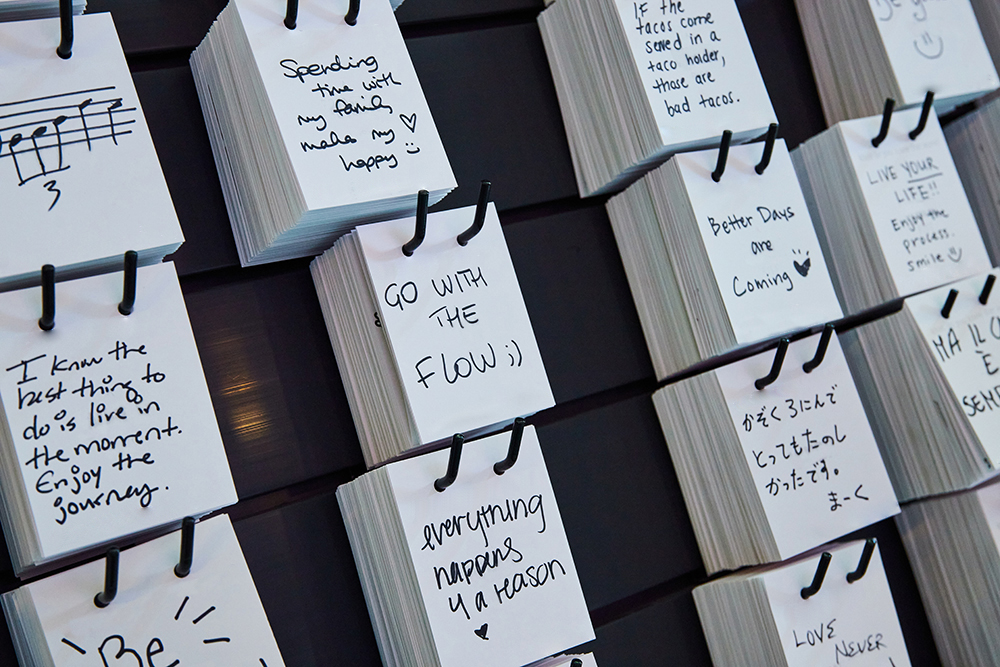 3
Spending
time with
my family
makes my
happy
IF the
tacos come
served in a
taco holder,
those are
bad tacos.
I know the
best thing to
do is live in
the moment.
Enjoy the
journey.
GO WITH
THE
FLOW ;)
Better Days
are
Coming
LIVE YOUR
LIFE!!
Enjoy the
process.
smile
MA IL
È
everything
happens
4 a reason
かぞくろにんで
とってもたのし
かったです。
まーく
Be
LOVE NEVER